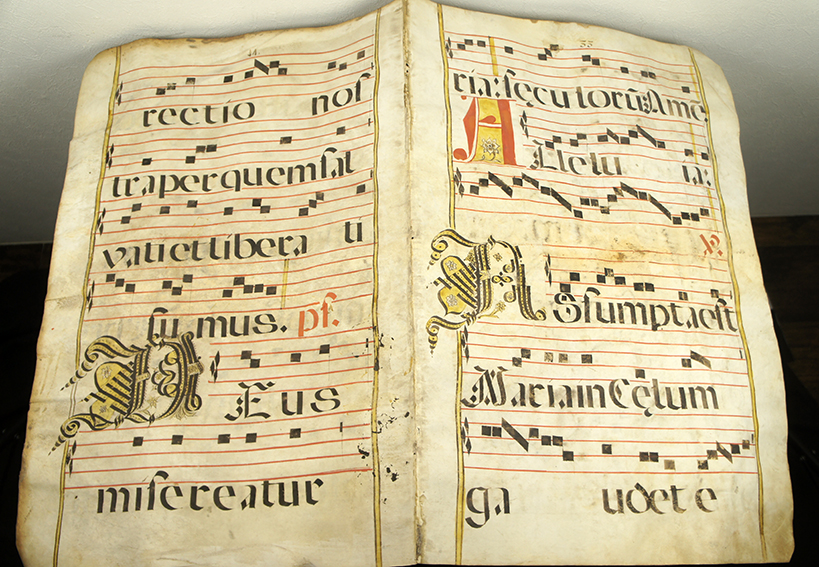 rectio nos
tra per quem sal
vati et libera ti
su mus. ps.
DEus
misereatur
33
ria: sęcutorũ: Amẽ
ALlelu ia:
℣.
ASsumpta est
Maria in Cęlum
ga udet e